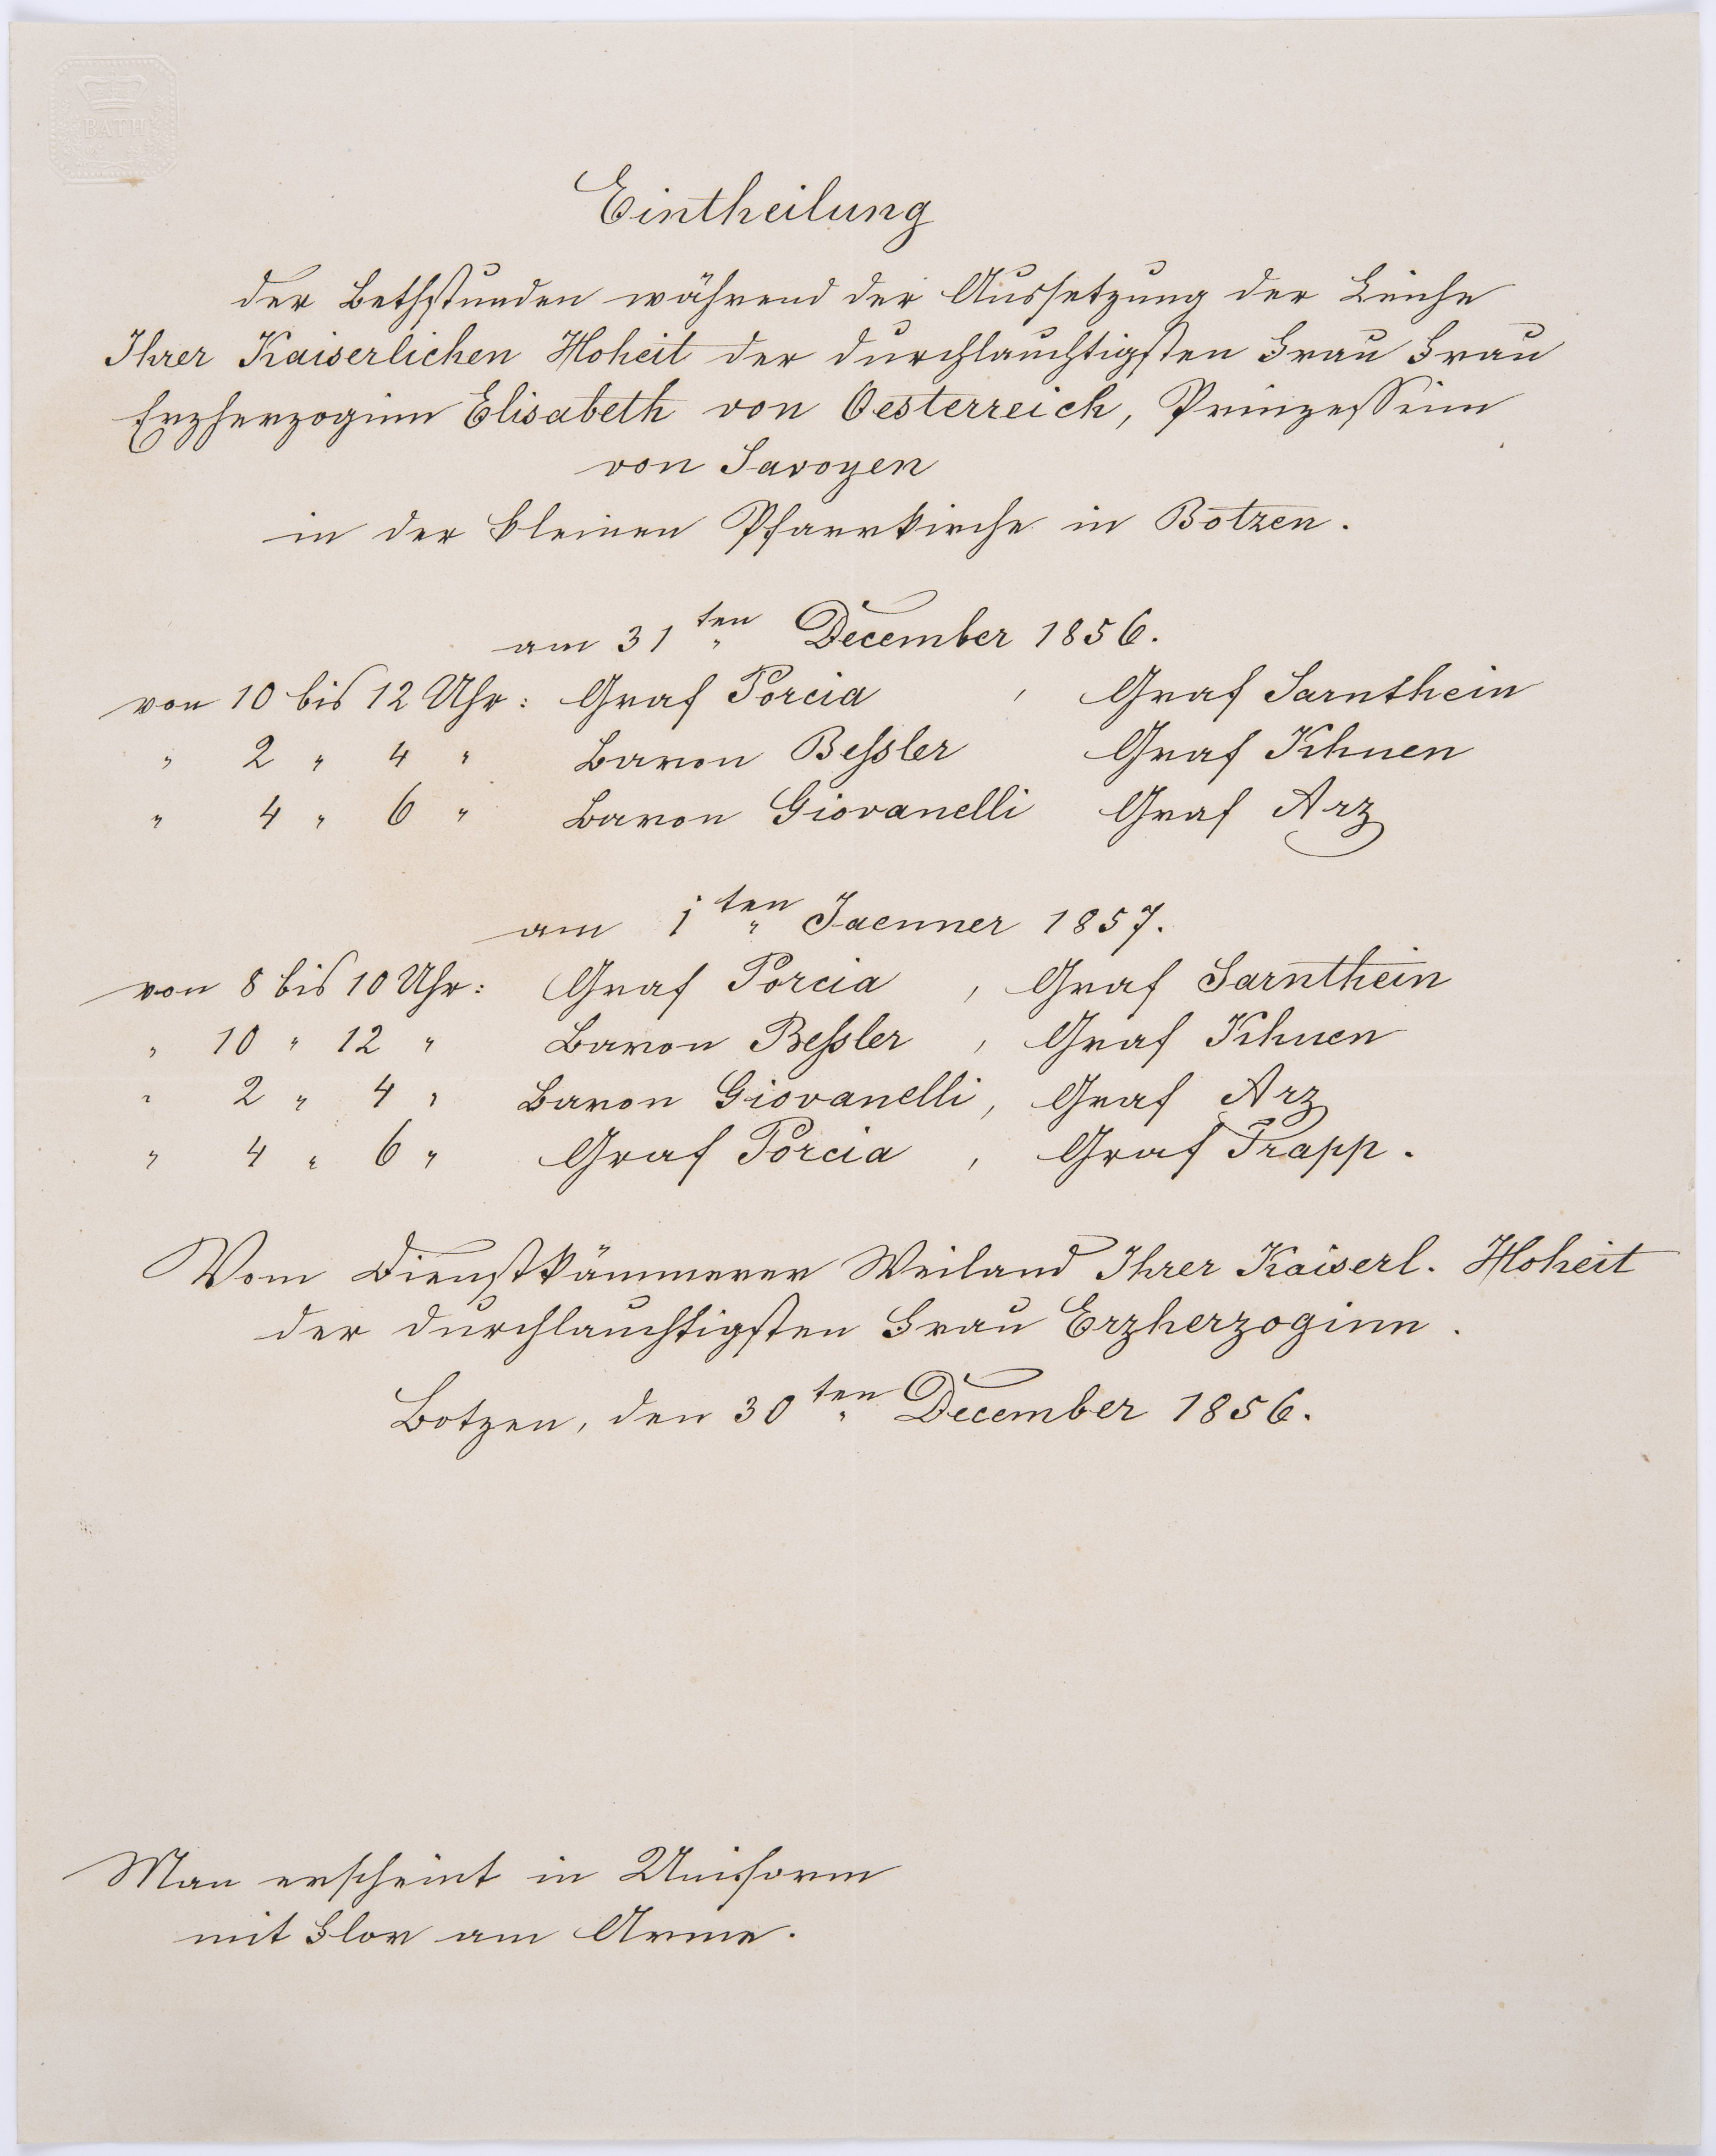 BATH
Eintheilung
der Bethstunden während der Aussetzung der Leiche
Ihrer Kaiserlichen Hoheit der durchlauchtigsten Frau Frau
Erzherzoginn Elisabeth von Oesterreich, Prinzessinn
von Savoyen
in der kleinen Pfarrkirche in Botzen.
am 31ten December 1856.
von 10 bis 12 Uhr: Graf Porcia , Graf Sarnthein
" 2 " 4 " Baron Beßler Graf Khuen
" 4 " 6 " Baron Giovanelli Graf Arz
am 1ten Jaenner 1857.
von 8 bis 10 Uhr: Graf Porcia , Graf Sarnthein
" 10 " 12 " Baron Beßler , Graf Khuen
" 2 " 4 " Baron Giovanelli, Graf Arz
" 4 " 6 " Graf Porcia , Graf Trapp.
Vom Dienstkämmerer Weiland Ihrer Kaiserl. Hoheit
der durchlauchtigsten Frau Erzherzoginn.
Botzen, den 30ten December 1856.
Man erscheint in Uniform
mit Flor am Arme.